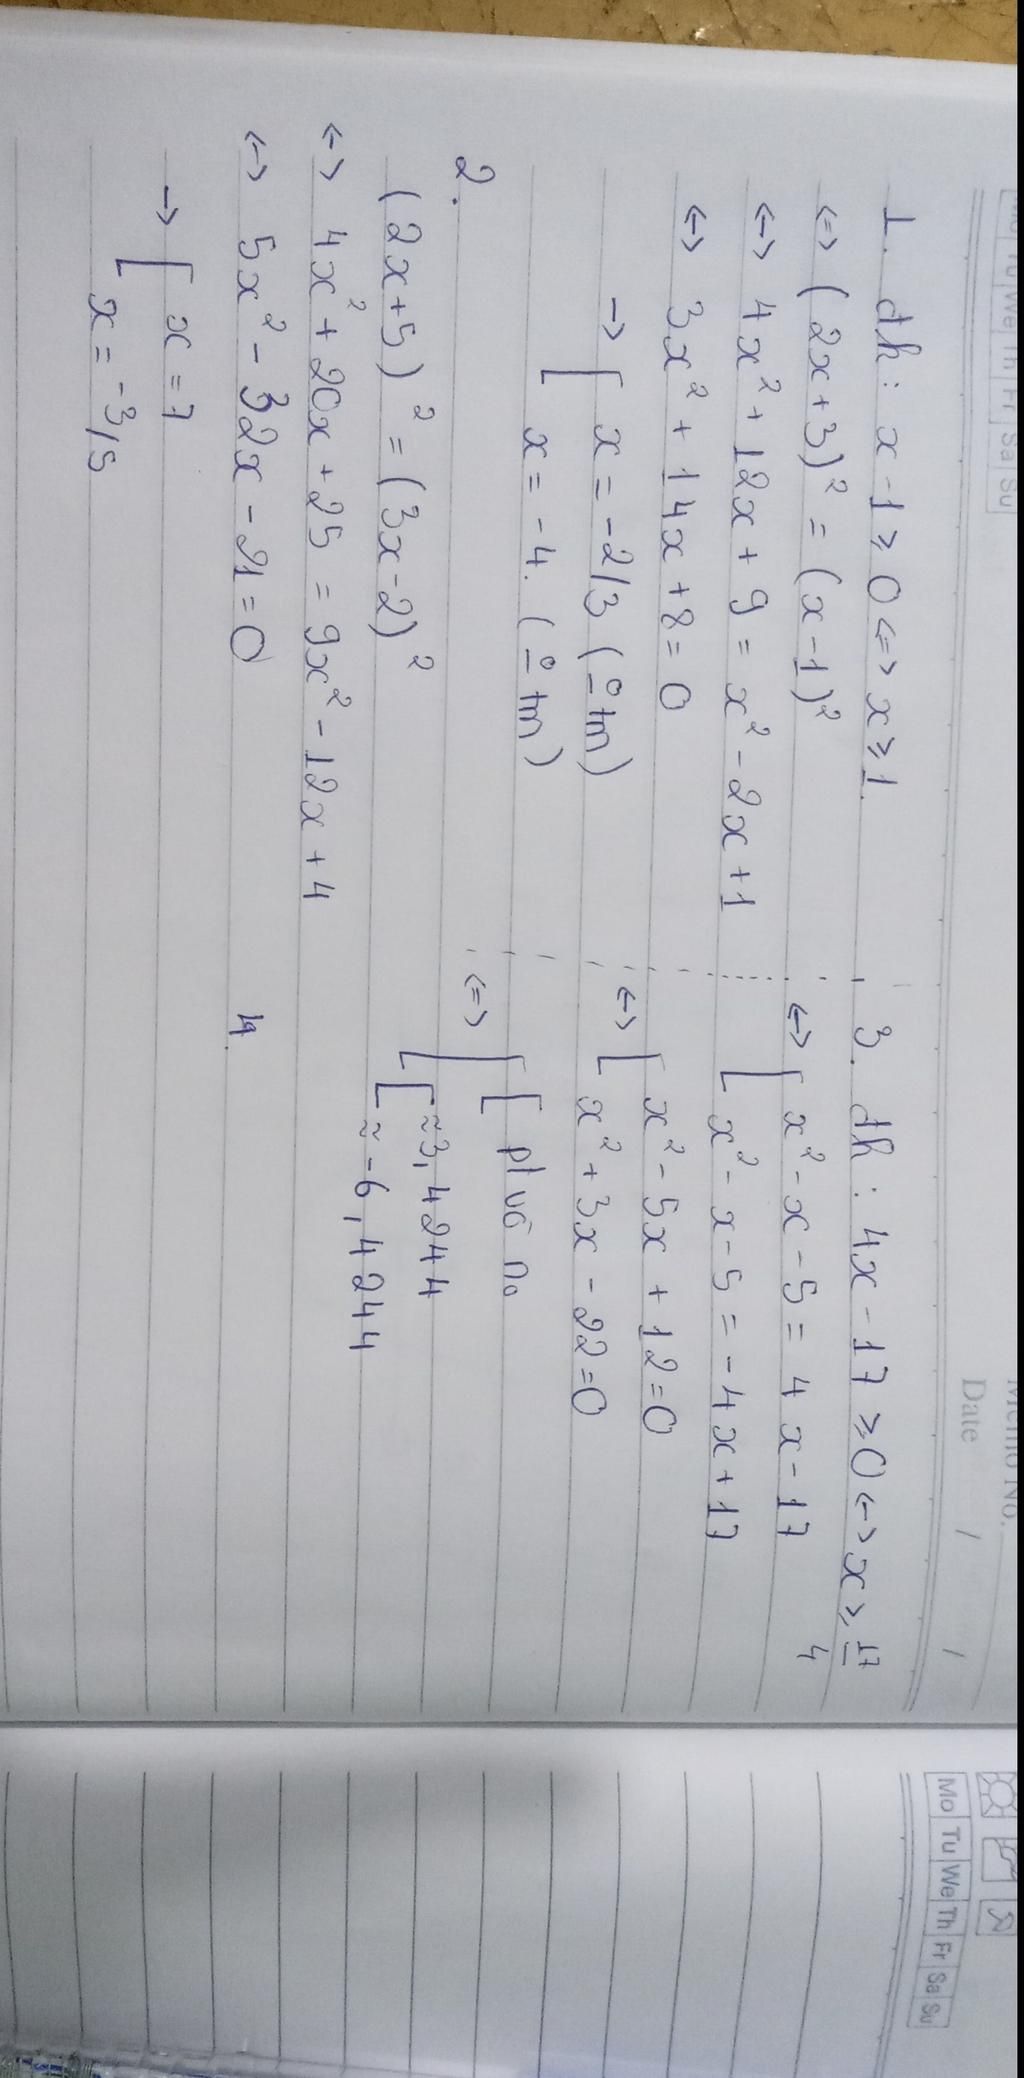 Memo No.
Mo Tu We Th Fr Sa Su
Date / /
1. đk: x - 1 ≥ 0 <=> x ≥ 1.
<=> (2x+3)² = (x-1)²
<-> 4x² + 12x + 9 = x² - 2x + 1
<-> 3x² + 14x + 8 = 0
-> [ x = -2/3 (o tm)
x = -4. (o tm)
2.
(2x+5)² = (3x-2)²
<-> 4x² + 20x + 25 = 9x² - 12x + 4
<-> 5x² - 32x - 21 = 0
-> [ x = 7
x = -3/5
3. đk: 4x - 17 ≥ 0 <-> x ≥ 17/4
<-> [ x² - x - 5 = 4x - 17
x² - x - 5 = -4x + 17
<-> [ x² - 5x + 12 = 0
x² + 3x - 22 = 0
<=> [ [ pt vô no
[ ≈ 3,4244
≈ -6,4244
4.
Mo Tu We Th Fr Sa Su